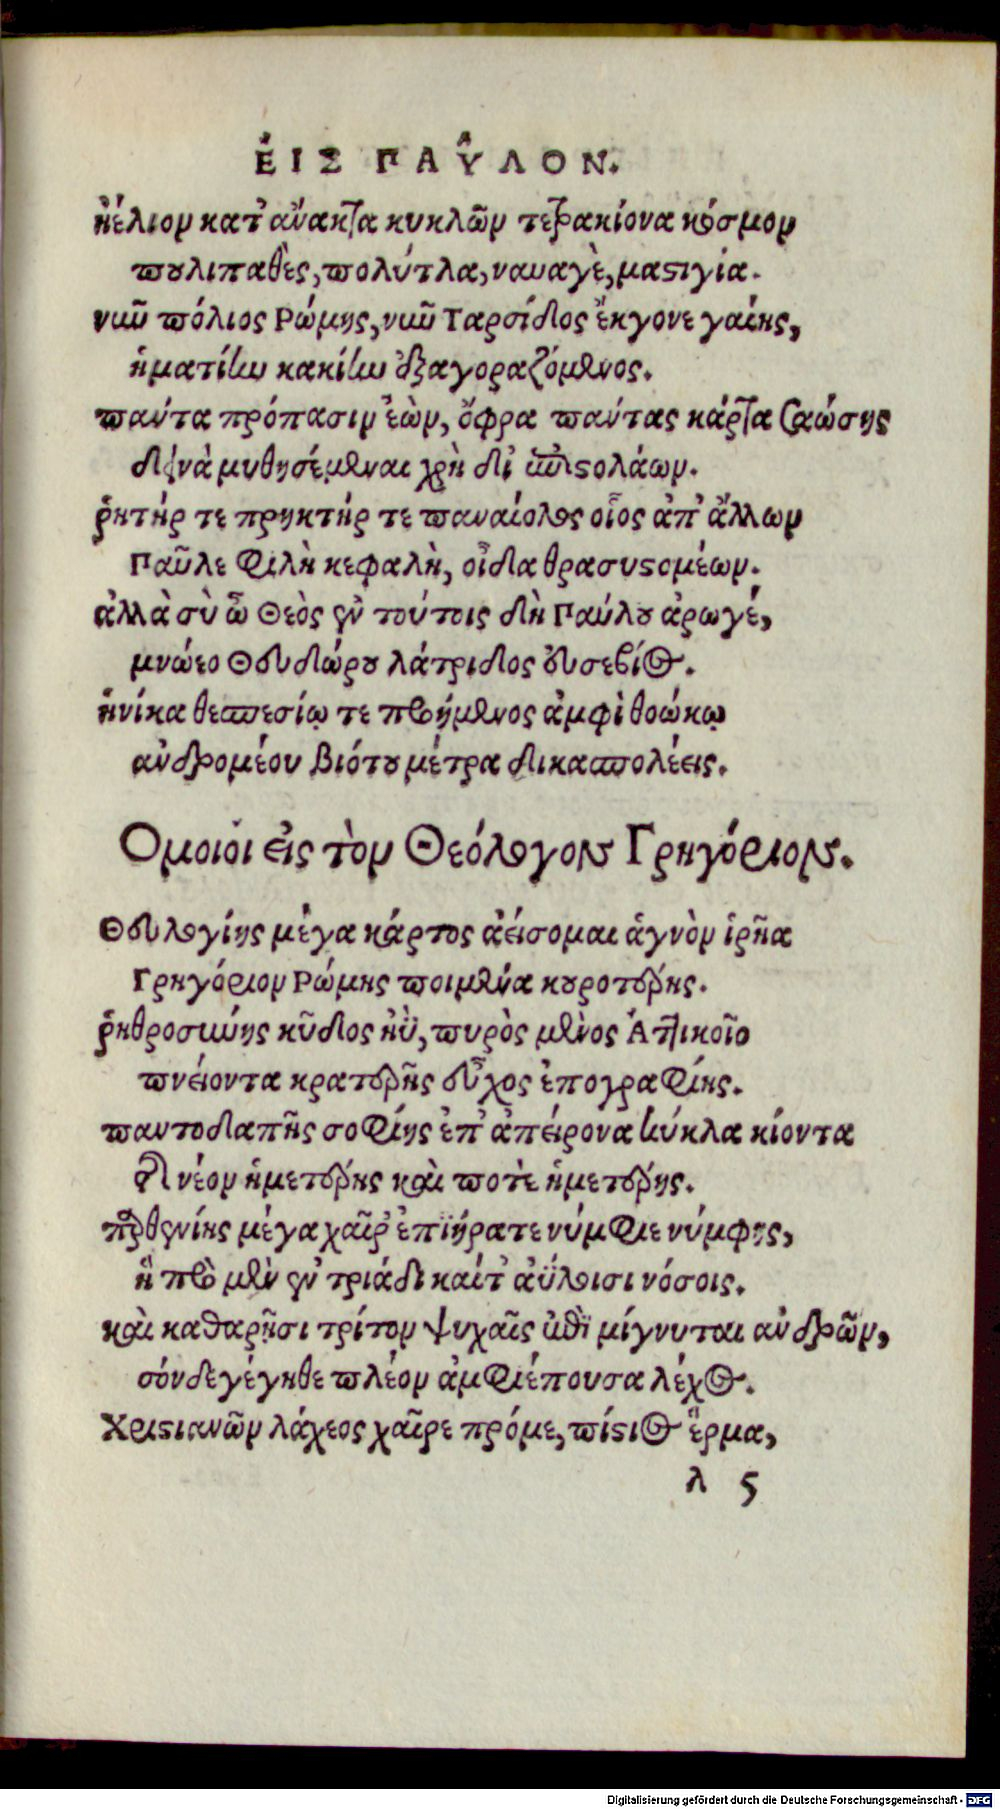 ἘΙΣ ΠΑΥ͂ΛΟΝ.
ἠέλιον κατ' ἄνακτα κυκλῶν τετρακίονα κόσμον
πουλιπαθὲς, πολύτλα, ναυαγὲ, μαστιγία.
νιῦ πόλιος Ρώμης, νιῦ Ταρσίδος ἔκγονε γαίης,
ἠματίην κακίην ἐξαγοραζόμενος.
πάντα πρόπασιν ἐὼν, ὄφρα πάντας κάρτα σαώσῃς
δεινὰ μυθησέμεναι χρὴ δι' ἐπιστολάων.
ῥητήρ τε πρηκτήρ τε παναίολος οἶος ἀπ' ἄλλων
Παῦλε φιλὴ κεφαλὴ, οἶδα θρασυστομέων.
ἀλλὰ σὺ ὦ Θεὸς ἐν τούτοις δὴ Παύλου ἀρωγέ,
μνώεο Θευδώρου λάτριδος εὐσεβίος.
ἡνίκα θεσπεσίῳ τε προήμενος ἀμφὶ θοώκῳ
ἀνδρομέου βιότου μέτρα δικασπολέεις.
Ομοιοι εἰς τὸν Θεόλογον Γρηγόριον.
Θευλογίης μέγα κάρτος ἀείσομαι ἁγνὸν ἱρῆα
Γρηγόριον Ρώμης ποιμένα κουροτέρης.
ῥηθροσιώης κῦδος ἠῢ, πυρὸς μένος Ἀττικοῖο
πνείοντα κρατερῆς εὖχος ἐπογραφίης.
παντοδαπῆς σοφίης ἐπ' ἀπείρονα κύκλα κίοντα
νέον ἡμετέρης καὶ ποτὲ ἡμετέρης.
παρθενίης μέγα χαῖρ' ἐπιήρατε νύμφιε νύμφης,
ἣ πρὸ μὲν ἐν τριάδι καίτ' ἀΰλοισι νόοσοις.
καὶ καθαρῇσι τρίτον ψυχαῖς ἐπὶ μίγνυται ἀνδρῶν,
σόνδε γέγηθε πλέον ἀμφιέπουσα λέχος.
Χριστιανῶν λάχεος χαῖρε πρόμε, πίστιος ἕρμα,
λ 5
Digitalisierung gefördert durch die Deutsche Forschungsgemeinschaft - DFG